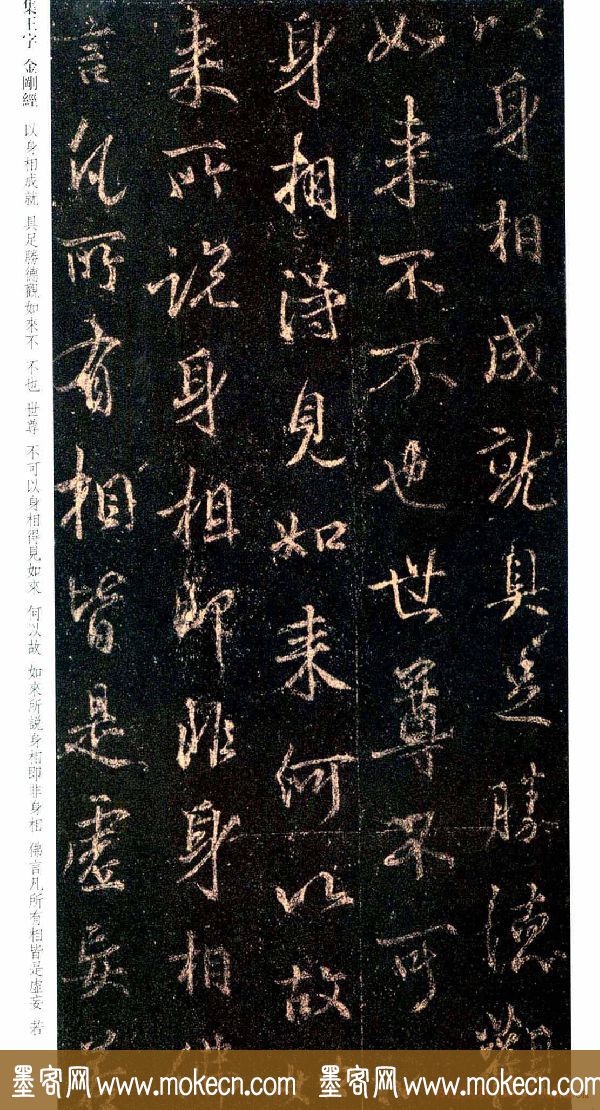 以身相成就具足勝德觀
如来不不也世尊不可
身相得見如来何以故
来所說身相即非身相
言凡所有相皆是虛妄若
集王字 金剛經 以身相成就 具足勝德觀如來不 不也 世尊 不可以身相得見如來 何以故 如來所說身相即非身相 佛言凡所有相皆是虛妄 若
墨客网 www.mokecn.com 墨客网 www.mokecn.com